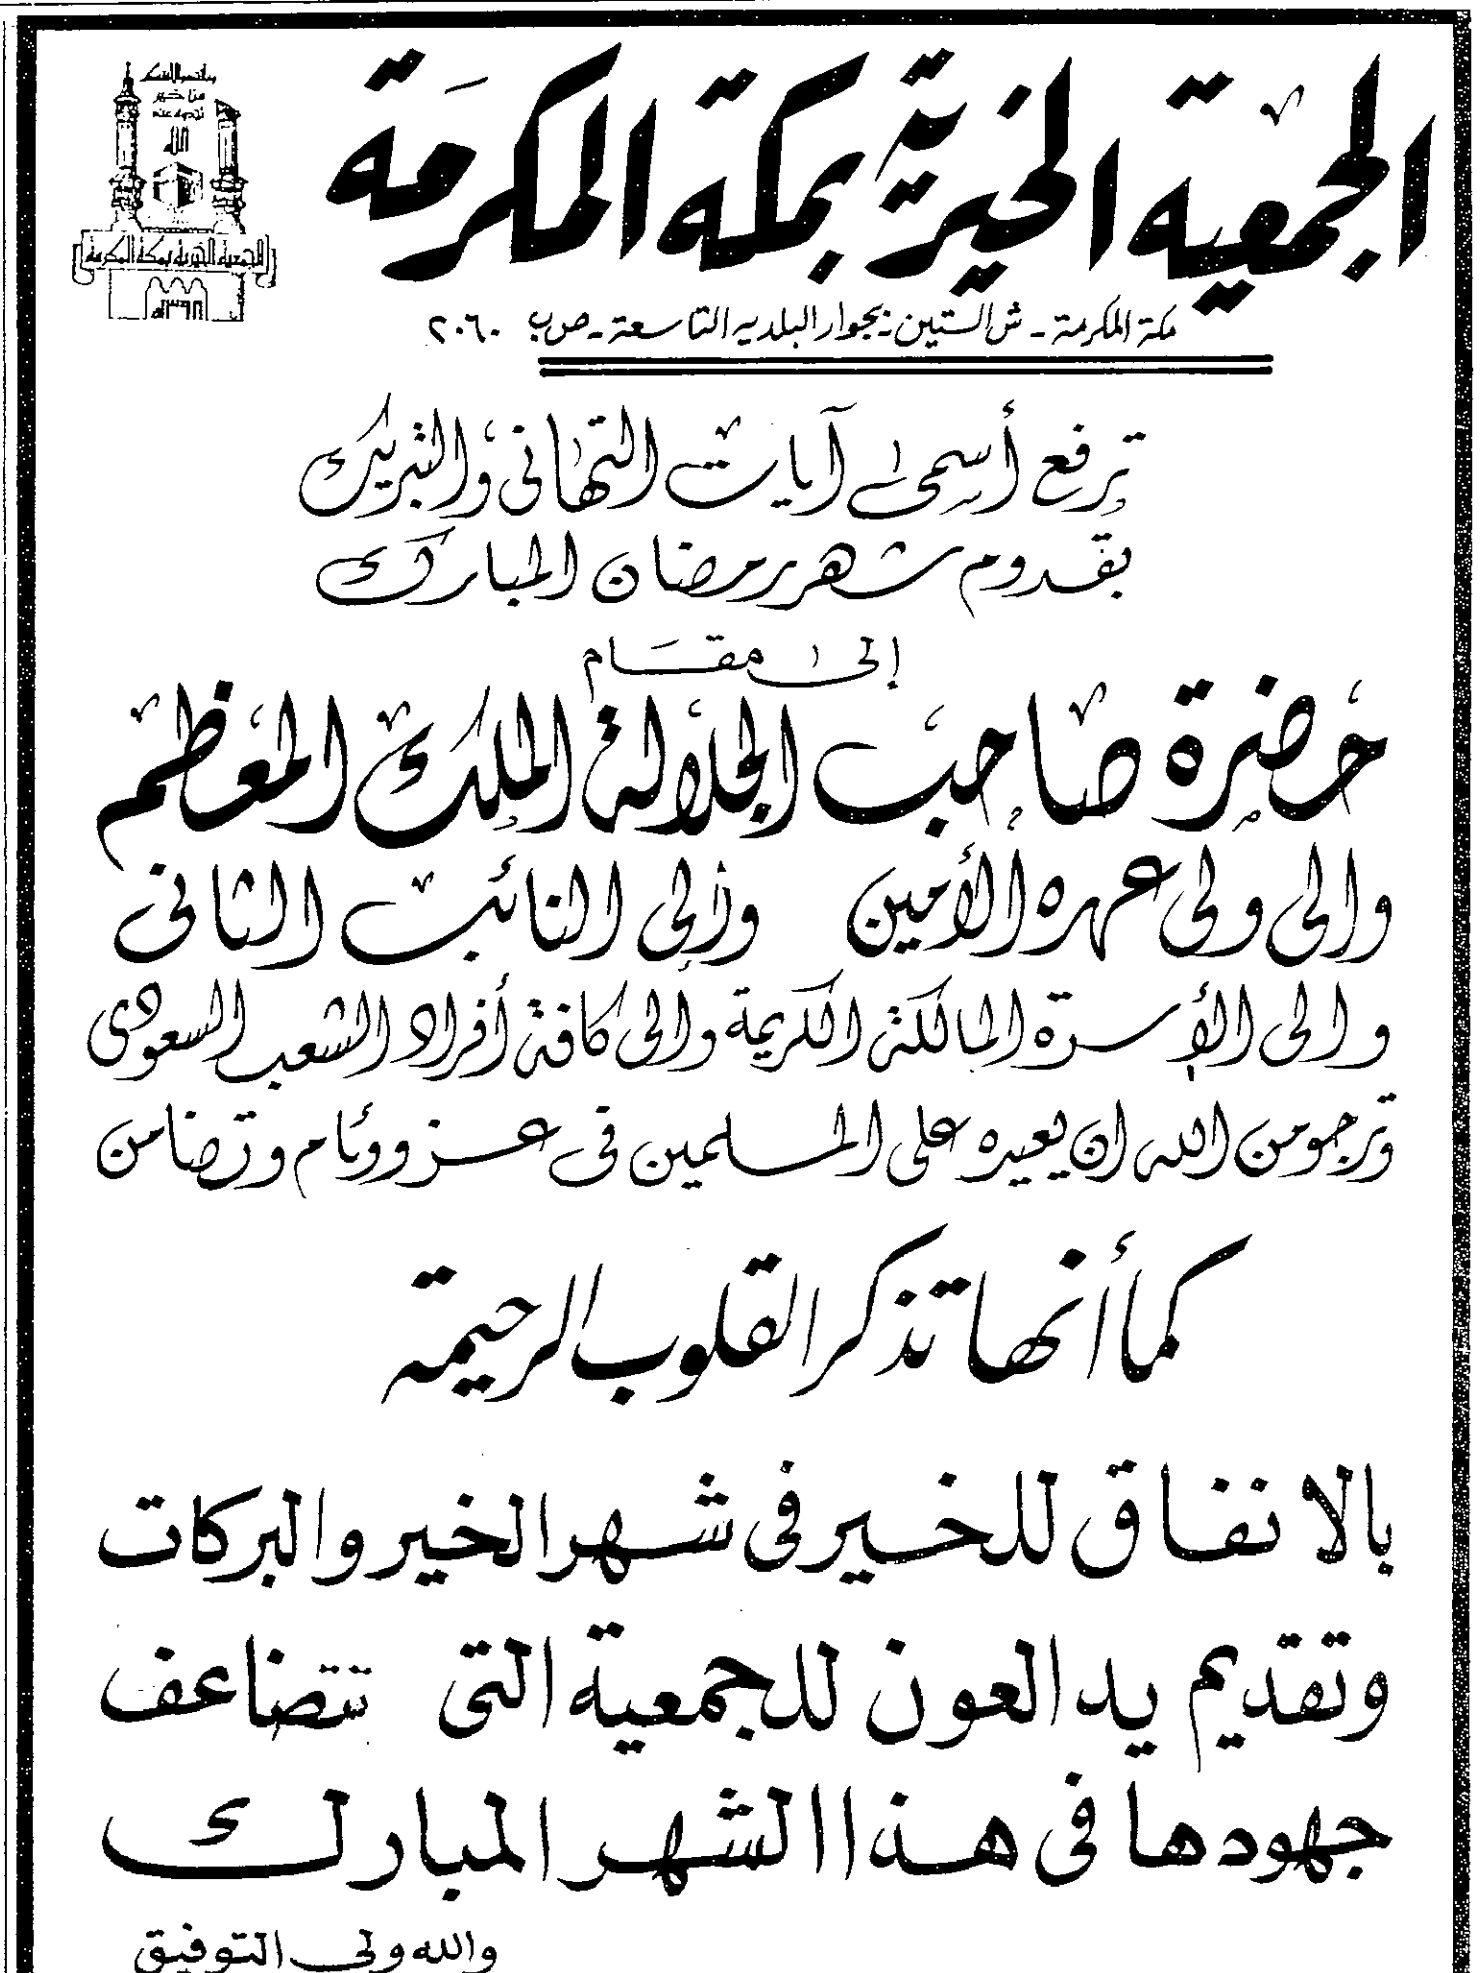 الجمعية الخيرية بمكة المكرمة
وما تنفقوا من خير تجدوه عند الله
الجمعية الخيرية بمكة المكرمة
مكة المكرمة - ش الستين - بجوار البلديه التاسعة - ص ب ٢٠٦٠
ترفع أسمى آيات التهانى والتبريك
بقدوم شهر رمضان المبارك
إلى مقام
حضرة صاحب الجلالة الملك المعظم
والى ولى عهده الأمين وإلى النائب الثانى
والى الأسرة المالكة الكريمة وإلى كافة أفراد الشعب السعودى
وترجو من الله ان يعيده على المسلمين فى عز ووئام وتضامن
كما أنها تذكر القلوب الرحيمة
بالانفاق للخير فى شهر الخير والبركات
وتقديم يد العون للجمعية التى تتضاعف
جهودها فى هذا الشهر المبارك
والله ولى التوفيق